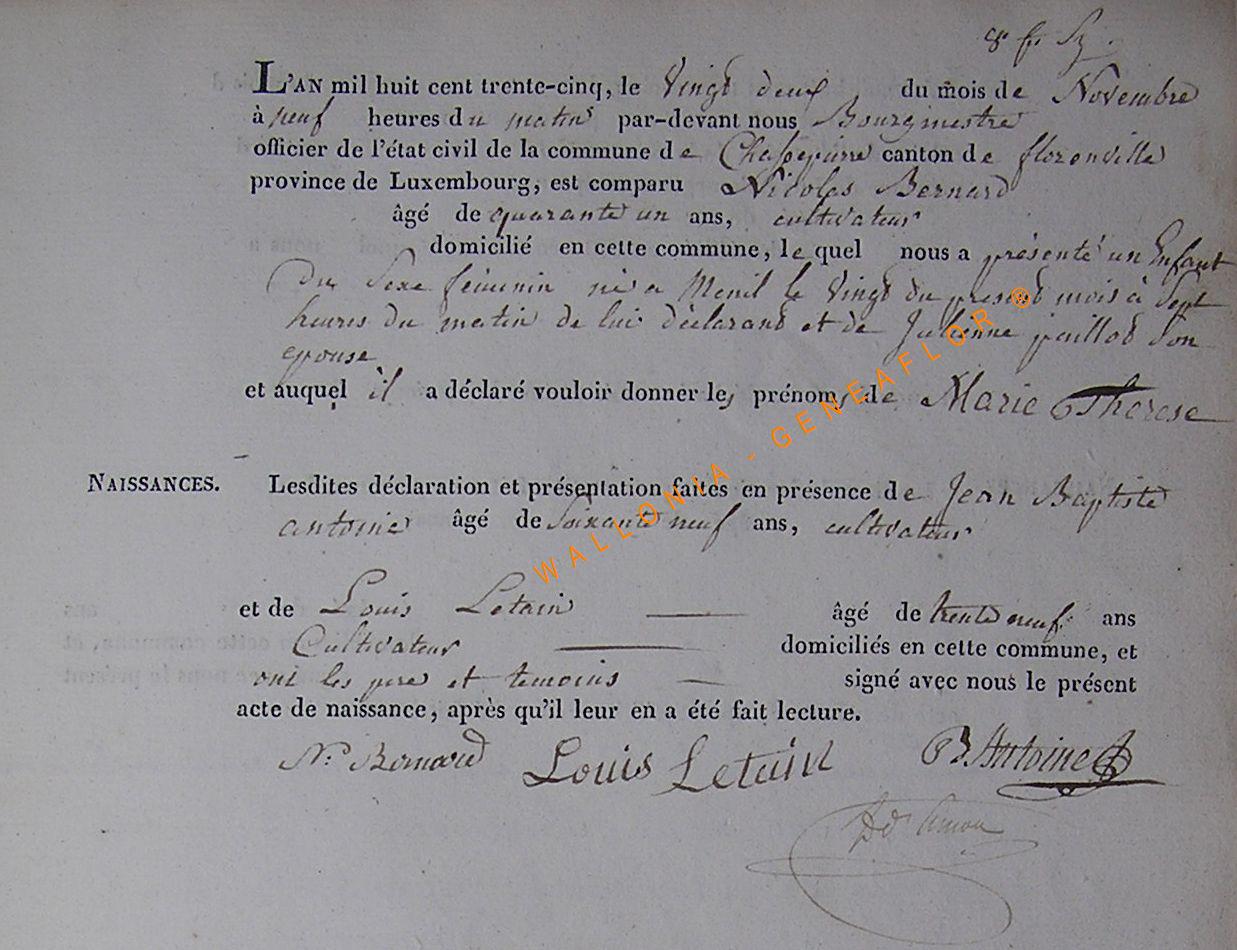 L'AN mil huit cent trente-cinq, le vingt deux du mois de Novembre
à neuf heures du matin par-devant nous Bourgmestre
officier de l'état civil de la commune de Chassepierre canton de florenville
province de Luxembourg, est comparu Nicolas Bernard
âgé de quarante un ans, cultivateur
domicilié en cette commune, le quel nous a présenté un Enfant
du Sexe féminin né a Menil le vingt du present mois à Sept
heures du matin de lui déclarant et de Julienne paillot Son
epouse
et auquel il a déclaré vouloir donner les prénoms de Marie Therese
NAISSANCES. Lesdites déclaration et présentation faites en présence de Jean Baptiste
antoine âgé de Soixante neuf ans, cultivateur
et de Louis Letain âgé de trente neuf ans
Cultivateur domiciliés en cette commune, et
ont les pere et temoins signé avec nous le présent
acte de naissance, après qu'il leur en a été fait lecture.
Ns Bernard Louis Letain B Antoine
WALLONIA - GENEAFLOR ®